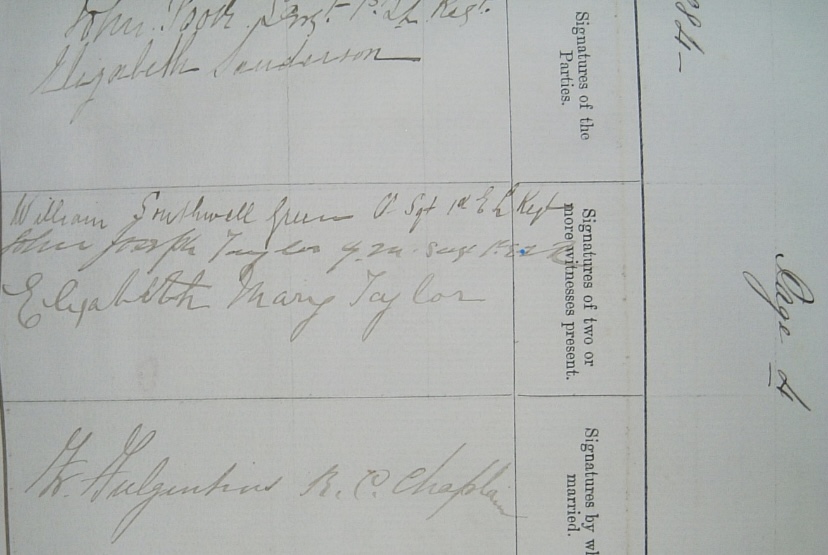 884-
Page 4
Signatures of the
Parties.
John Sergt 1st Regt.
Elizabeth Sanderson
Signatures of two or
more witnesses present.
William Southwell Green Sgt 1st E L Regt
John Joseph Taylor Q.M. Sergt
Elizabeth Mary Taylor
Signatures by wh
married.
Fr. Fulgentius R. C. Chaplain